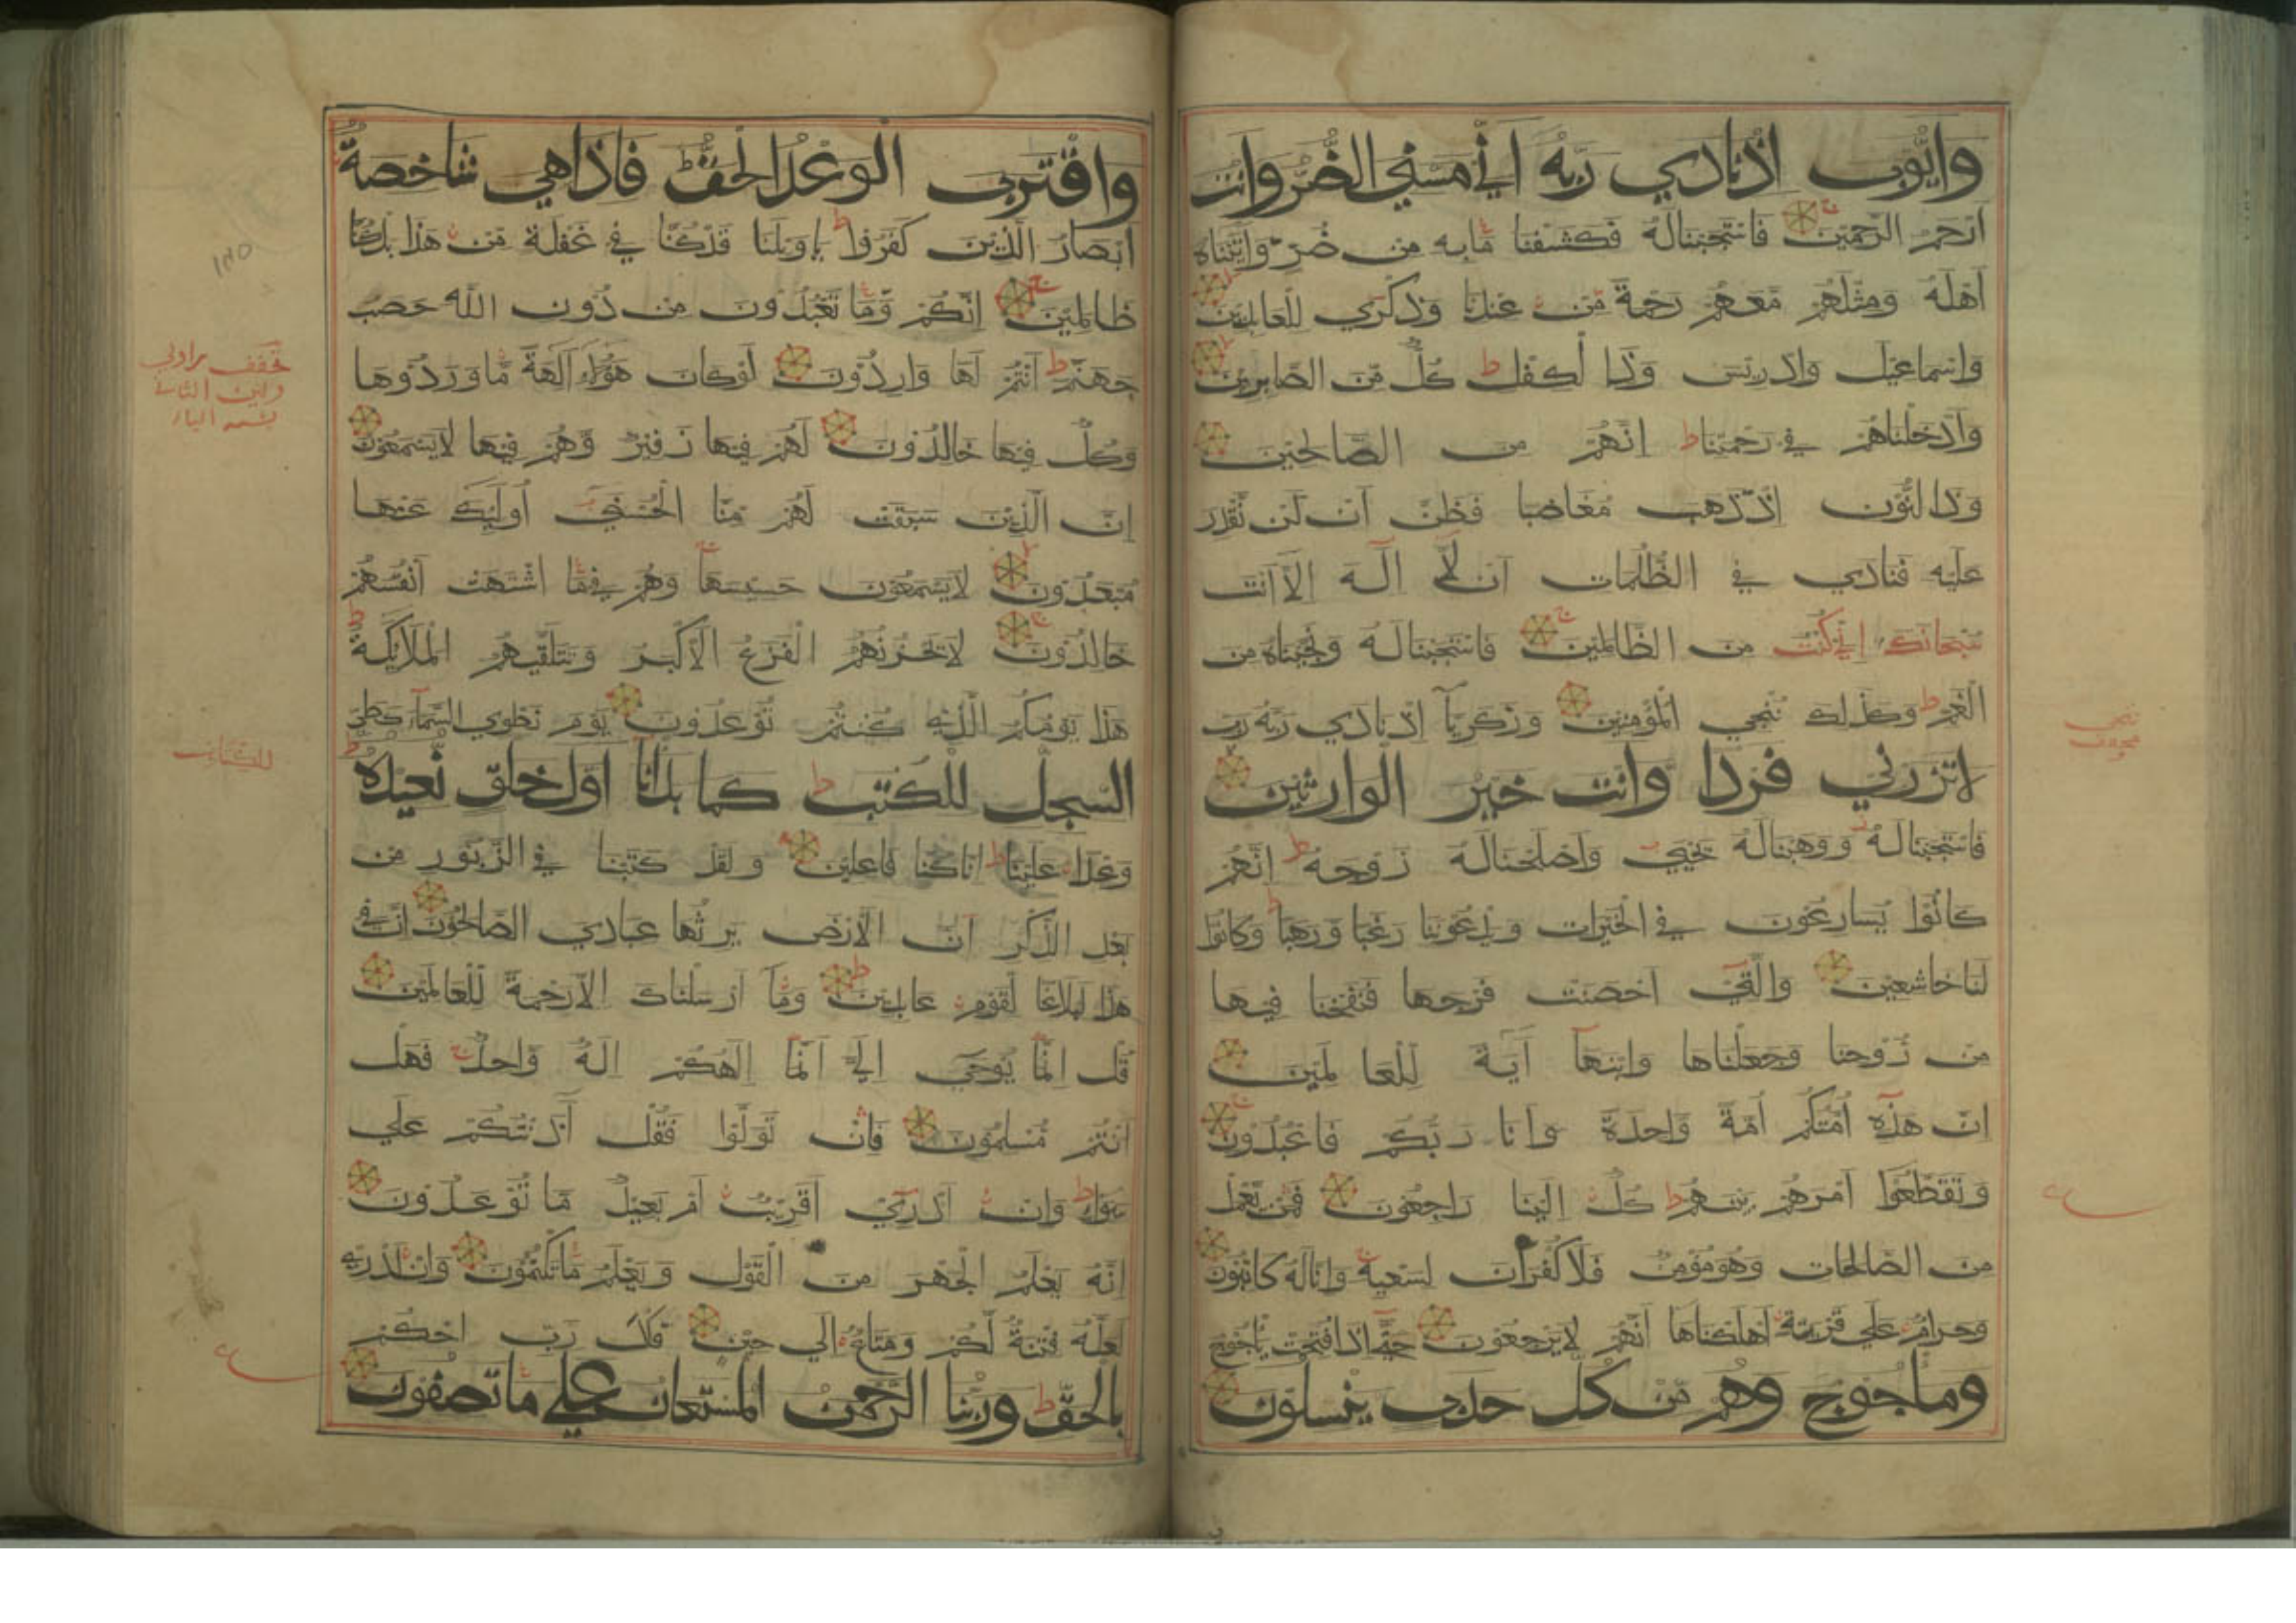 وايوب اذ نادي ربه اني مسني الضر وانت
ارحم الرحمين فاستجبنا له فكشفنا ما به من ضر واتيناه
اهله ومثلهم معهم رحمة من عندنا وذكري للعابدين
واسماعيل وادريس وذا الكفل ط كل من الصابرين
وادخلناهم في رحمتنا ط انهم من الصالحين
وذا النون اذ ذهب مغاضبا فظن ان لن نقدر
عليه فنادي في الظلمات ان لا اله الا انت
سبحانك اني كنت من الظالمين ج فاستجبنا له ونجيناه من
الغم ط وكذلك ننجي المؤمنين وزكريا اذ نادي ربه رب
لا تذرني فردا وانت خير الوارثين
فاستجبنا له ووهبنا له يحيي واصلحنا له زوجه ط انهم
كانوا يسارعون في الخيرات ويدعوننا رغبا ورهبا ط وكانوا
لنا خاشعين والتي احصنت فرجها فنفخنا فيها
من روحنا وجعلناها وابنها آية للعالمين
ان هذه امتكم امة واحدة وانا ربكم فاعبدون
وتقطعوا امرهم بينهم ط كل الينا راجعون فمن يعمل
من الصالحات وهو مؤمن فلا كفران لسعيه ج وانا له كاتبون
وحرام علي قرية اهلكناها انهم لا يرجعون حتي اذا فتحت ياجوج
وماجوج وهم من كل حدب ينسلون
واقترب الوعد الحق ط فاذا هي شاخصة
ابصار الذين كفروا ط يا ويلنا قد كنا في غفلة من هذا بل كنا
ظالمين ج انكم وما تعبدون من دون الله حصب
جهنم ط انتم لها واردون لو كان هؤلاء آلهة ما وردوها
وكل فيها خالدون لهم فيها زفير وهم فيها لا يسمعون
ان الذين سبقت لهم منا الحسني اوليك عنها
مبعدون لا يسمعون حسيسها وهم في ما اشتهت انفسهم
خالدون ج لا يحزنهم الفزع الاكبر وتتلقيهم الملايكة ط
هذا يومكم الذي كنتم توعدون يوم نطوي السماء كطي
السجل للكتب ط كما بدانا اول خلق نعيده ط
وعدا علينا ط انا كنا فاعلين ولقد كتبنا في الزبور من
بعد الذكر ان الارض يرثها عبادي الصالحون ان في
هذا لبلاغا لقوم عابدين ط وما ارسلناك الا رحمة للعالمين
قل انما يوحي الي انما الهكم اله واحد ج فهل
انتم مسلمون فان تولوا فقل آذنتكم علي
سواء ط وان ادري اقريب ام بعيد ما توعدون
انه يعلم الجهر من القول ويعلم ما تكتمون وان ادري
لعله فتنة لكم ومتاع الي حين قل رب احكم
بالحق ط وربنا الرحمن المستعان علي ما تصفون